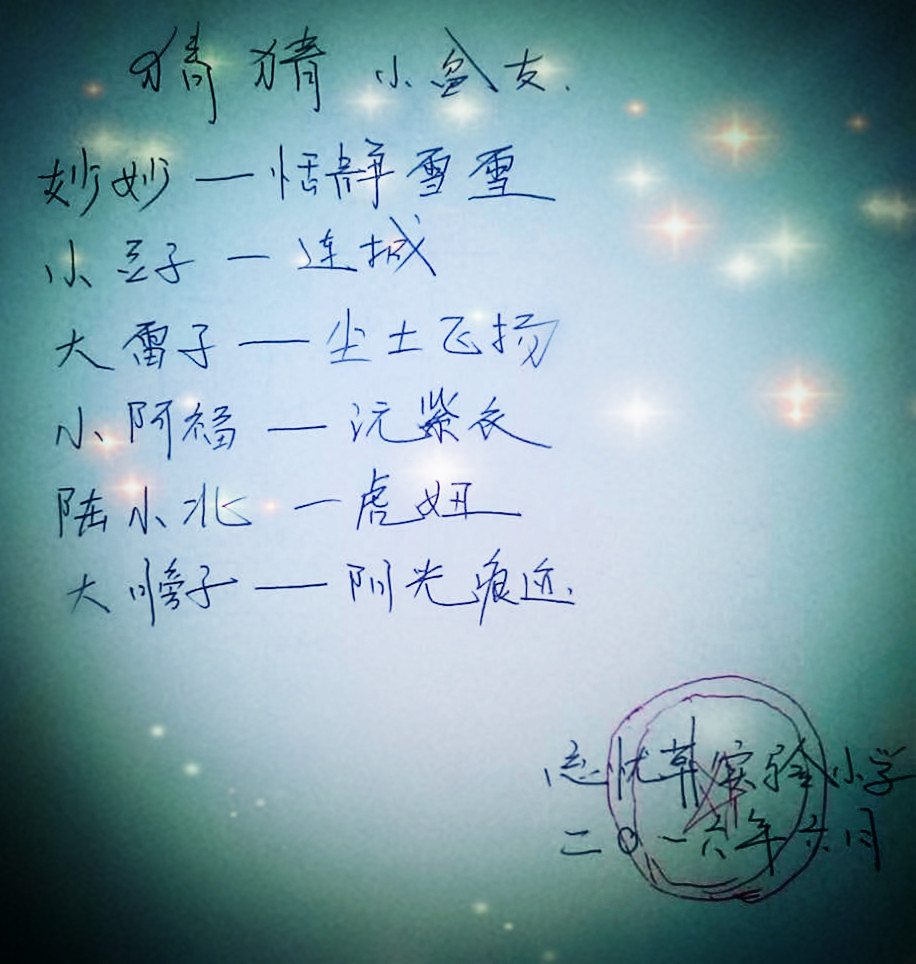 猜猜小盆友.
妙妙—恬静雪雪
小豆子—连城
大雷子—尘土飞扬
小阿福—沅紫衣
陆小北—虎妞
大胖子—阳光痕迹.
忘忧草实验小学
二〇一六年六月